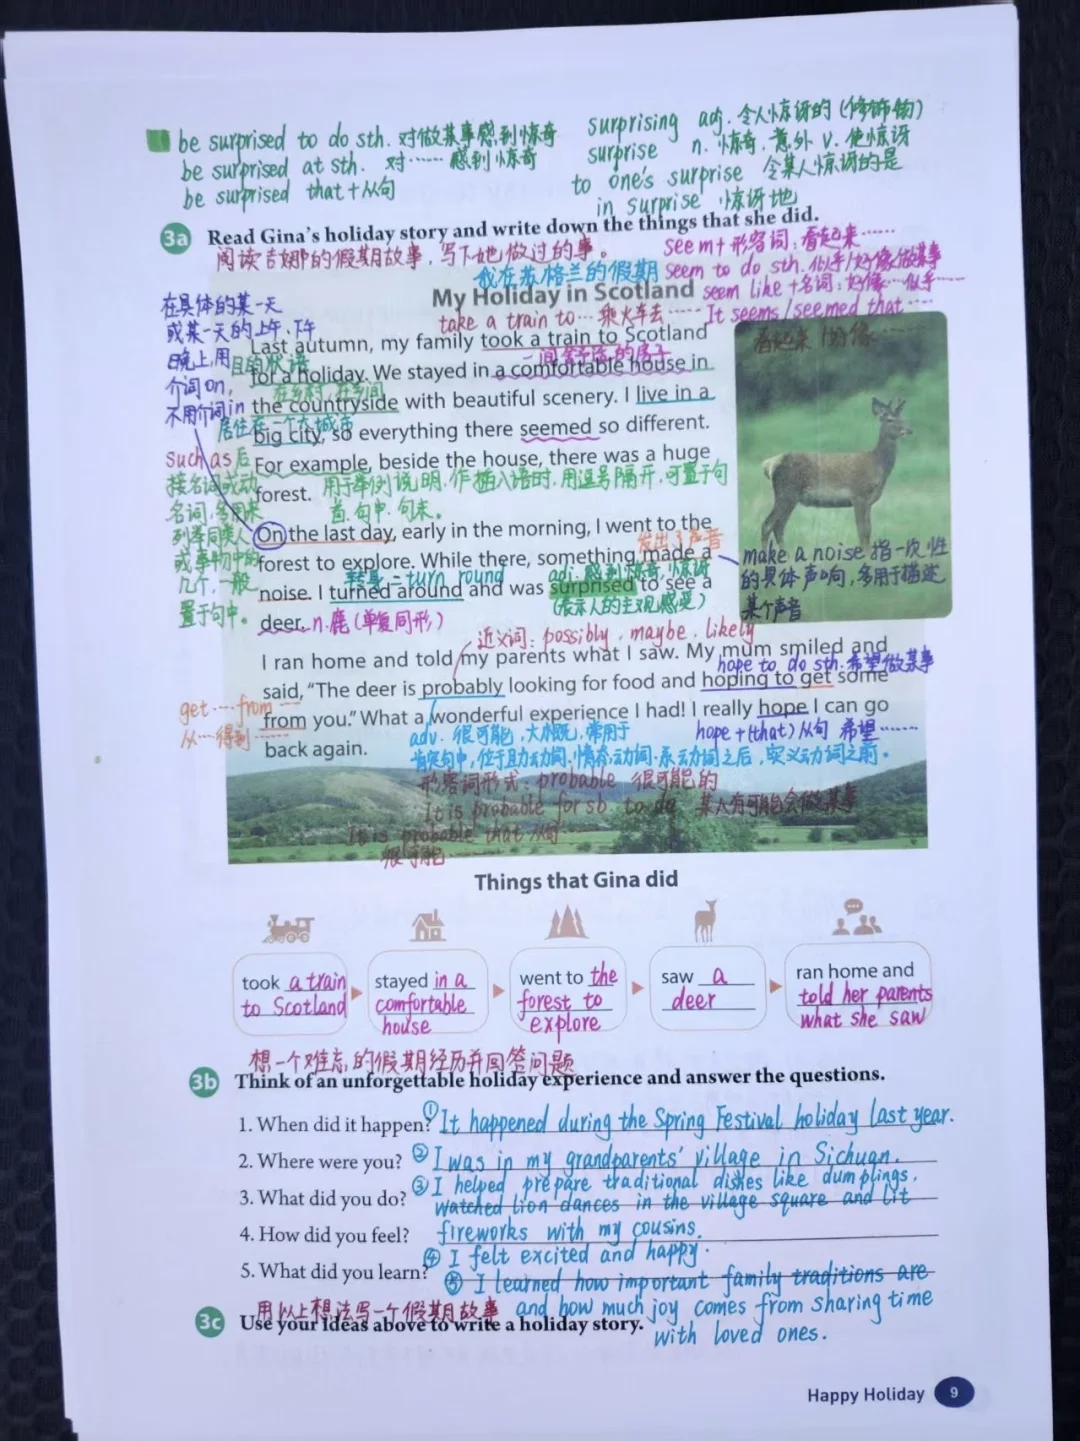 be surprised to do sth. 对做某事感到惊奇
be surprised at sth. 对…… 感到惊奇
be surprised that+从句
surprising adj. 令人惊讶的(修饰物)
surprise n. 惊奇,意外 v. 使惊讶
to one's surprise 令某人惊讶的是
in surprise 惊讶地
3a Read Gina's holiday story and write down the things that she did.
阅读吉娜的假期故事,写下她做过的事。
seem+形容词:看起来……
seem to do sth. 似乎/好像做某事
seem like+名词:好像…似乎……
It seems/seemed that……
看起来/好像…
我在苏格兰的假期
My Holiday in Scotland
take a train to… 乘火车去……
在具体的某一天
或某一天的上午、下午
晚上,用
介词on,
不用介词in
目的状语
一间舒适的房子
在乡村,在乡间
居住在一个大城市
Last autumn, my family took a train to Scotland
for a holiday. We stayed in a comfortable house in
the countryside with beautiful scenery. I live in a
big city, so everything there seemed so different.
For example, beside the house, there was a huge
forest.
用于举例说明,作插入语时,用逗号隔开,可置于句
首、句中、句末。
such as后
接名词或动
名词,多用来
列举同类人
或事物中的
几个,一般
置于句中。
On the last day, early in the morning, I went to the
forest to explore. While there, something made a
noise. I turned around and was surprised to see a
deer.
发出了声音
转身=turn round
adj. 感到惊奇,惊讶
(表示人的主观感受)
n.鹿(单复同形)
make a noise 指一次性
的具体声响,多用于描述
某个声音
近义词:possibly, maybe, likely
I ran home and told my parents what I saw. My mum smiled and
said, "The deer is probably looking for food and hoping to get some
from you." What a wonderful experience I had! I really hope I can go
back again.
hope to do sth. 希望做某事
get…from…
从…得到……
adv. 很可能,大概,常用于
肯定句中,位于助动词、情态动词、系动词之后,实义动词之前。
hope+(that)从句 希望……
形容词形式:probable 很可能的
It is probable for sb to do 某人有可能会做某事
It is probable that 从句
很可能……
Things that Gina did
took a train
to Scotland
stayed in a
comfortable
house
went to the
forest to
explore
saw a
deer
ran home and
told her parents
what she saw
想一个难忘的假期经历并回答问题
3b Think of an unforgettable holiday experience and answer the questions.
1. When did it happen? ①It happened during the Spring Festival holiday last year.
2. Where were you? ②I was in my grandparents' village in Sichuan.
3. What did you do? ③I helped prepare traditional dishes like dumplings,
watched lion dances in the village square and lit
fireworks with my cousins.
4. How did you feel? ④I felt excited and happy.
5. What did you learn? ⑤I learned how important family traditions are
and how much joy comes from sharing time
with loved ones.
用以上想法写一个假期故事
3c Use your ideas above to write a holiday story.
Happy Holiday 9